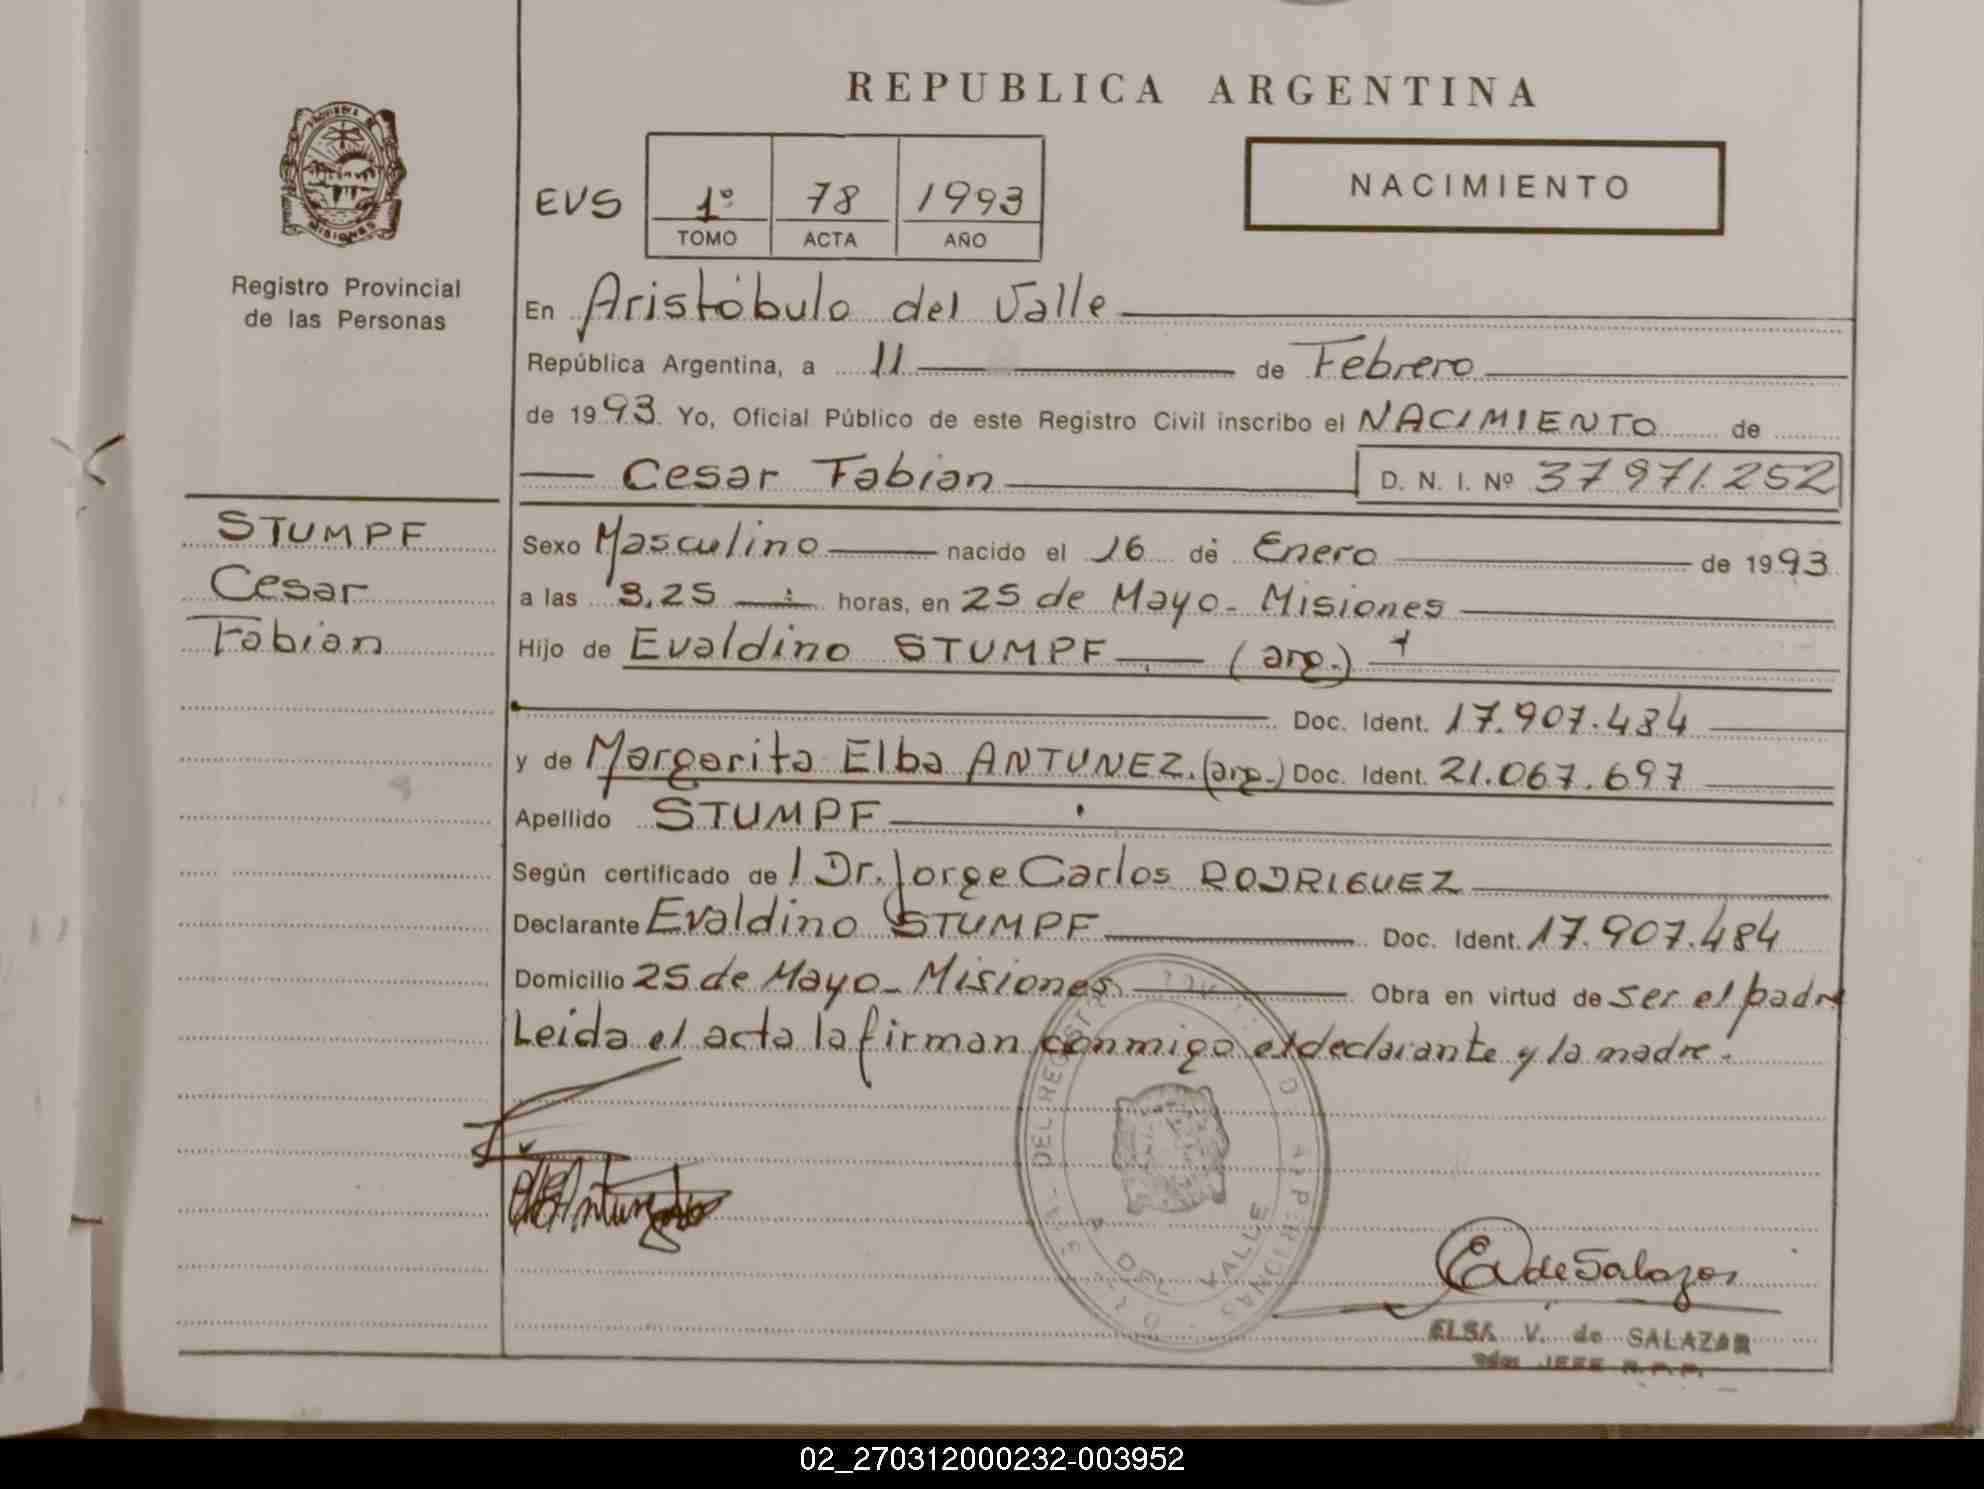 REPUBLICA ARGENTINA
NACIMIENTO
EVS 1º 78 1993
TOMO ACTA AÑO
MISIONES
Registro Provincial
de las Personas
En Aristóbulo del Valle
República Argentina, a 11 de Febrero
de 1993. Yo, Oficial Público de este Registro Civil inscribo el NACIMIENTO de
Cesar Fabian D. N. I. Nº 37971.252
STUMPF
Cesar
Fabian
Sexo Masculino nacido el 16 de Enero de 1993
a las 3,25 horas, en 25 de Mayo - Misiones
Hijo de Evaldino STUMPF (arg.)
Doc. Ident. 17.907.484
y de Margarita Elba ANTUNEZ. (arg.) Doc. Ident. 21.067.697
Apellido STUMPF
Según certificado de l Dr. Jorge Carlos RODRIGUEZ
Declarante Evaldino STUMPF Doc. Ident. 17.907.484
Domicilio 25 de Mayo - Misiones Obra en virtud de ser el padre
Leida el acta la firman conmigo el declarante y la madre.
DEL VALLE
E V de Salazar
ELSA V. de SALAZAR
JEFE R.P.P.
02_270312000232-003952